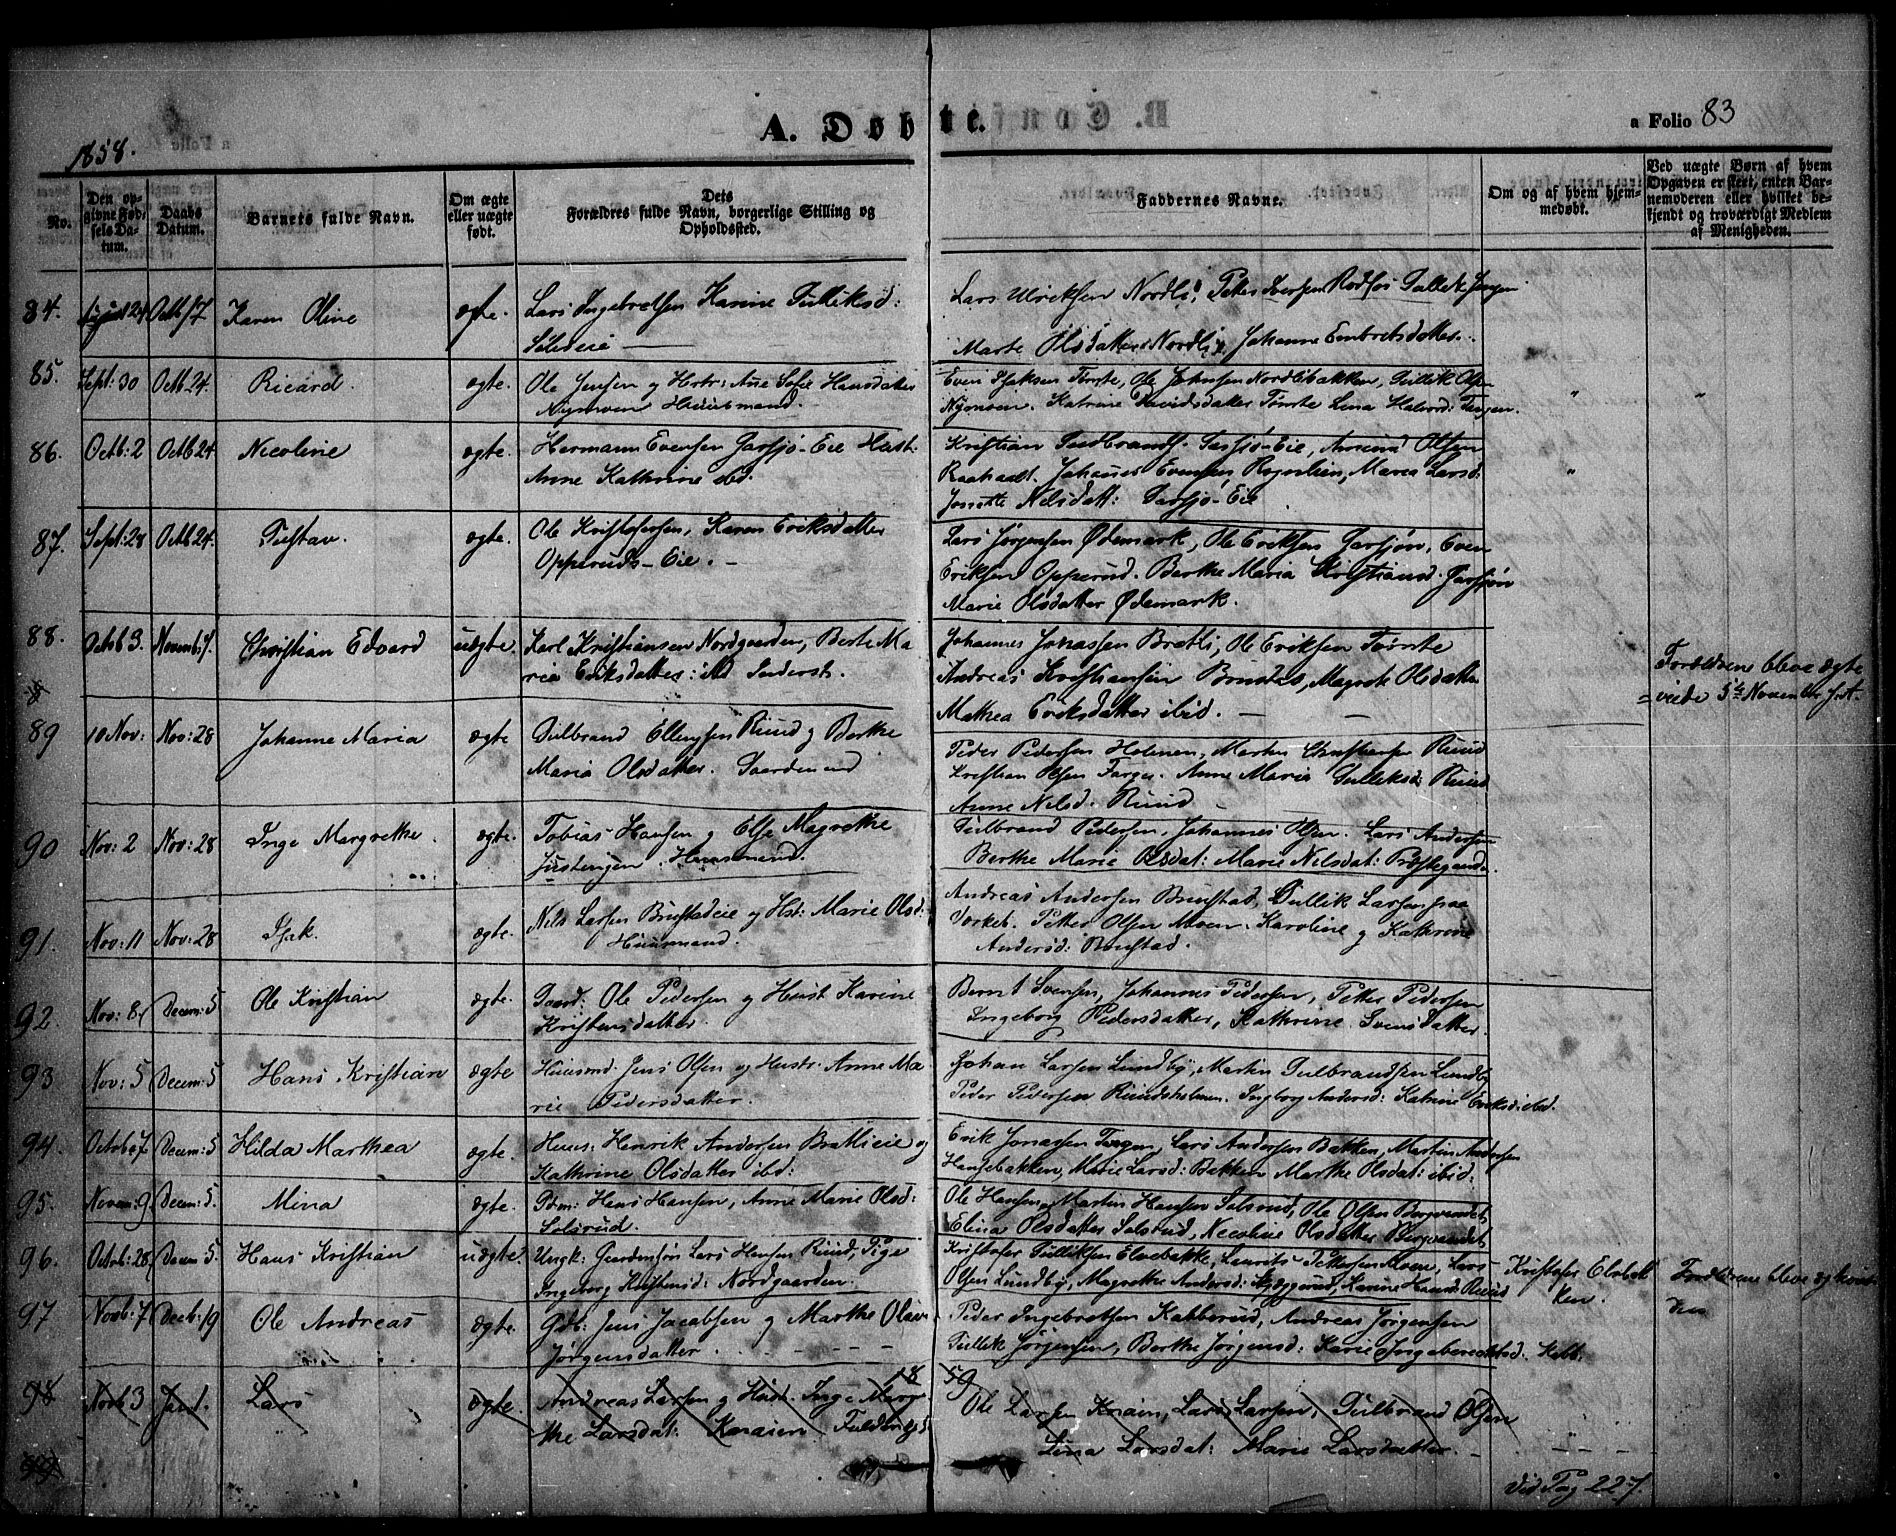 1858.
A. Døbte.
a Folio 83
No.
Den opgivne Fødselsdatum.
Daabs Datum.
Barnets fulde Navn.
Om ægte eller uægte født.
Dets Forældres fulde Navn, borgerlige Stilling og Opholdssted.
Faddernes Navne.
Om og af hvem hjemmedøbt.
Ved uægte Børn af hvem Opgaven er skeet, enten Barnemoderen eller hvilket bekjendt og troværdigt Medlem af Menigheden.
84. August 24 Octb 17 Karen Oline ægte. Lars Ingebretsen Karine Gulliksd:
Lars Ulriksen Nordli, Peter Iversen Gullik
Marte Olsdatter Nordli, Johanne Embretsdatter.
85. Sept: 30 Octb 24. Ricard. ægte. Ole Jensen og Hstr: Ane Sofie Hansdatter
Nymoen Huusmand.
Even Isaksen Tørrte, Ole Johnsen Nordlibakken, Gullik Olsen
Nymoen. Katrine Davidsdatter Tørrte Lina Halvord: Tangen.
86. Octb: 2 Octb 24 Nicoline ægte. Hermann Evensen Garsjø-Eie Hust:
Anne Kathrine ibd.
Kristian Gudbrands. Garsjø-Eie, Amund Olsen
Raaholt. Johannes Evensen Rognlien, Maria Larsd:
Jonette Nilsdatt: Garsjø-Eie
87. Sept: 28 Octb 24. Gustav. ægte. Ole Kristofersen, Karen Eriksdatter
Opperuds-Eie. -
Lars Jørgensen Ødemark, Ole Eriksen Garsjøn, Even
Eriksen Opperud. Berthe Maria Kristiansd. Garsjøn
Marie Olsdatter Ødemark.
88. Octob 3. Novemb: 7. Christian Edvard uægte. Karl Kristiansen Nordgaarden, Berte Ma
ria Eriksdatter:
Johannes Jonassen Bratli, Ole Eriksen Tørrte
Andreas Kristiansen Magrete Olsdatter
Mathea Eriksdatter ibid. -
Forældrene bleve ægte
viede 5te November
89 10 Nov: Nov: 28 Johanne Maria ægte Gulbrand Ellengsen Ruud og Berthe
Maria Olsdatter. Gaardmand
Peder Pedersen Holmen, Martin Christiansen Ruud
Kristian Olsen Anne Maria Gulliksd: Ruud
Anne Nilsd. Ruud -
90 Nov: 2 Nov: 28 Inge Margrethe. ægte. Tobias Hansen og Else Magrethe
Justengen. Huusmand.
Gulbrand Pedersen, Johannes Olsen. Lars Andersen
Berthe Marie Olsdat: Marie Nilsdat:
91. Nov: 11 Nov: 28 Isak. ægte. Nils Larsen Brustadeie og Hst: Marie Olsd:
Huusmand.
Andreas Andersen Brustad, Gullik Larsen paa
Torket. Petter Olsen Moen. Karoline og Kathrine
Andersd: Brustad.
92. Nov: 8 Decem: 5 Ole Kristian ægte. Gaard: Ole Pedersen og Hust Karine
Kristensdatter.
Bernt Svensen, Johannes Pedersen, Petter Pedersen
Ingeborg Pedersdatter, Kathrine. Svensdatter.
93 Nov: 5 Decem: 5 Hans Kristian ægte Huusmd: Jens Olsen og Hustr. Anne Ma
rie Pedersdatter.
Johan Larsen Lundby, Martin Gulbrandsen Lundby
Peder Pedersen Ruudsholmen. Ingborg Andersd: Katrine Eriksd: ibd.
94. Octob: 7 Decem: 5 Hilda Marthea ægte. Huus: Henrik Andersen Bratlieie og
Kathrine Olsdatter ibd:
Erik Jonassen Tangen, Lars Andersen Bakken, Martin Andersen
Haugebakken, Marie Larsd: Bakken Marthe Olsdat: ibid:
95. Novem: 9. Decem: 5. Mina ægte. Gdm: Hans Hansen, Anne Marie Olsd:
Solsrud.
Ole Hansen, Martin Hansen Solsrud, Ole Olsen
Elina Olsdatter Solsrud, Nicoline Olsdatter
96. Octob: 28 Decem 5. Hans Kristian uægte. Ungk: Gaardmsøn Lars Hansen Ruud, Pige
Ingeborg Kristensd: Nordgaarden.
Kristofer Gulliksen Elvebakke, Laurits Pettersen Moen, Lars
Olsen Lundby, Magrethe Andersd: Karine Hansd: Ruud
Kristofer Elvebak
ken.
Forældrene bleve
97 Novb: 7 Decb: 19 Ole Andreas ægte. Gdb: Jens Jacobsen og Marthe Olava
Jørgensdatter.
Peder Ingebretsen Kabberud, Andreas Jørgensen
Gullik Jørgensen, Berthe Jørgensd: Karie Ingeberetsd. Kabb.
98 Novb 3 Jan 1. Lars ægte. Andreas Larsen og Hust. Inge Magre
the Larsdat: Knaien
1859
Ole Larsen Knaien, Lars Larsen, Gulbrand Olsen
Lina Larsdat: Marie Larsdatter.
99
Vid Pag 227.